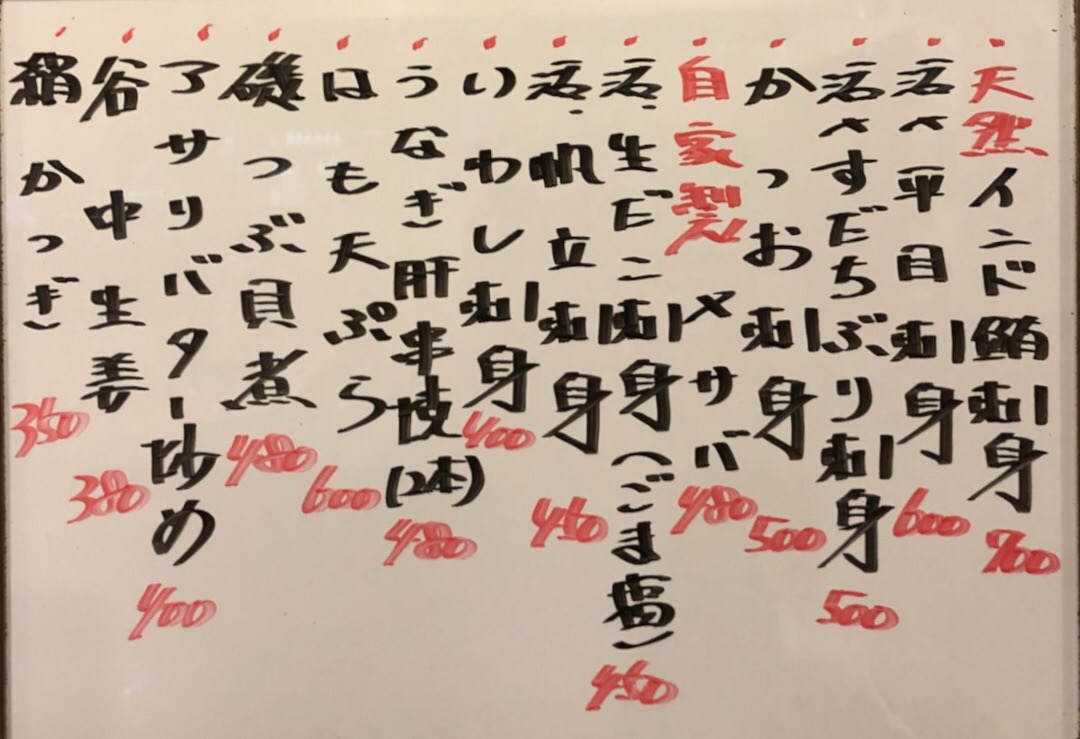 天然インド鮪刺身 700
活〆平目刺身 600
活〆すだちぶり刺身 500
かつお刺身 500
自家製〆サバ 480
活生だこ刺身(ごま塩) 450
活帆立刺身 450
いわし刺身 400
うなぎ肝串焼(2本) 480
はも天ぷら 600
磯つぶ貝煮 480
アサリバター炒め 400
谷中生姜 380
絹かつぎ 350